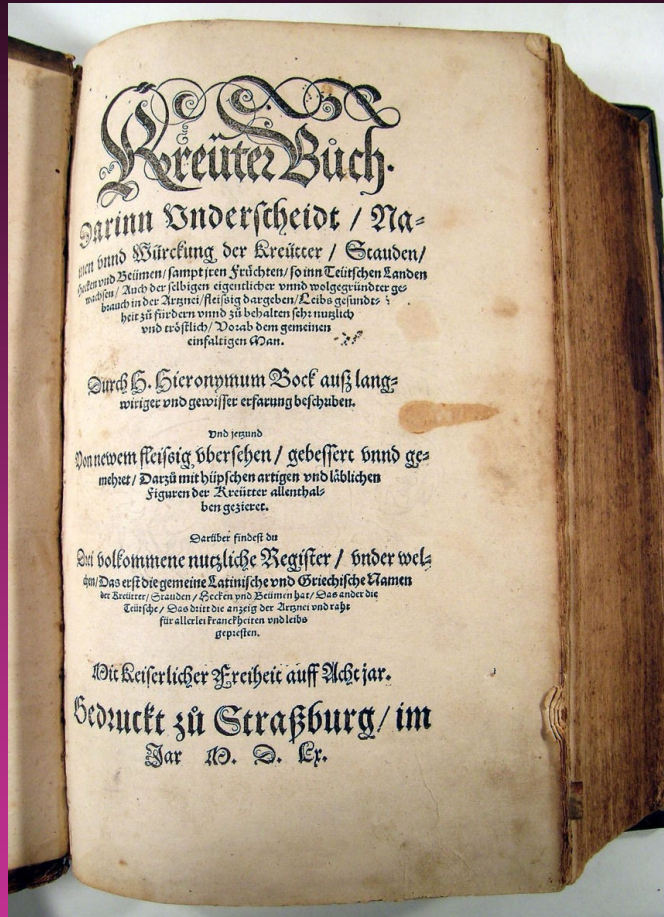 Kreüter Bůch.
Darinn Vnderscheidt / Na=
men vnnd Würckung der Kreütter / Stauden /
Hecken vnd Beümen / sampt jren Früchten / so inn Teütschen Landen
wachsen / Auch der selbigen eigentlicher vnnd wolgegründter ge=
brauch in der Artznei / fleissig dargeben / Leibs gesundt=
heit zů fürdern vnnd zů behalten sehr nutzlich
vnd tröstlich / Vorab dem gemeinen
einfaltigen Man.
Durch H. Hieronymum Bock auß lang=
wiriger vnd gewisser erfarung beschriben.
Vnd jetzund
Von newem fleissig vbersehen / gebessert vnnd ge=
mehret / Darzů mit hüpschen artigen vnd läblichen
Figuren der Kreütter allenthal=
ben gezieret.
Darüber findest du
Drei volkommene nutzliche Register / vnder wel=
chen / Das erst die gemeine Latinische vnd Griechische Namen
der Kreütter / Stauden / Hecken vnd Beümen hat / Das ander die
Teütsche / Das dritt die anzeig der Artznei vnd raht
für allerlei kranckheiten vnd leibs
gepresten.
Mit Keiserlicher Freiheit auff Acht jar.
Gedruckt zů Straßburg / im
Jar M. D. Lx.